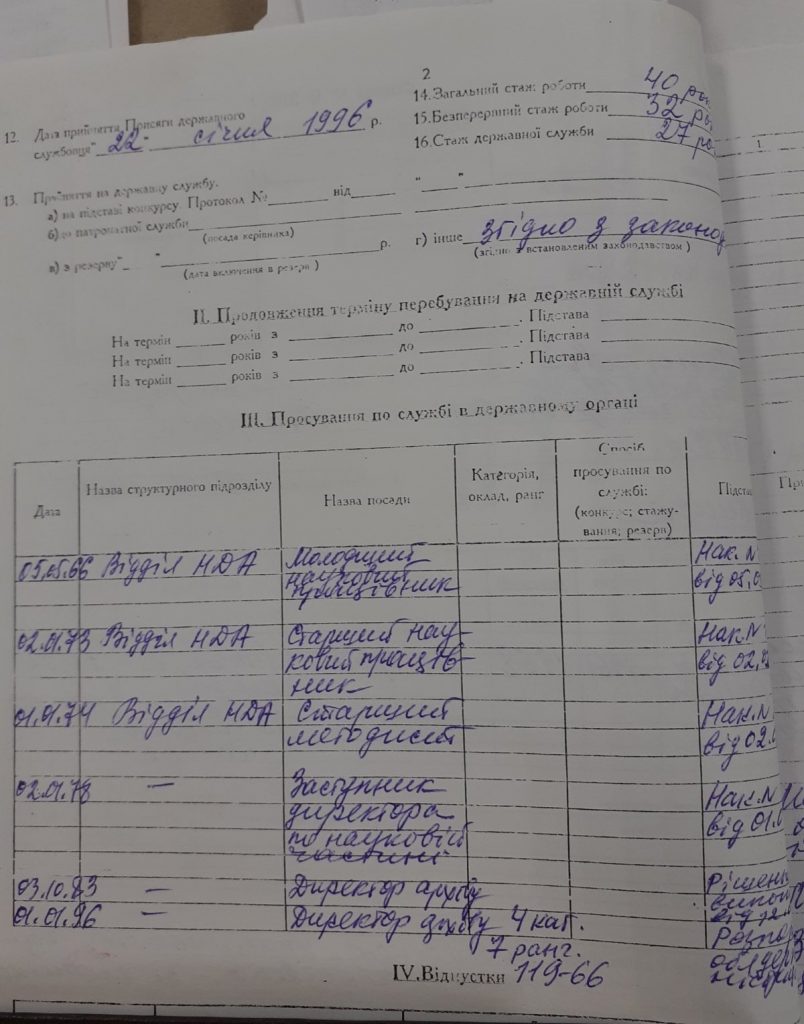 2
12. Дата прийняття Присяги державного
службовця "22" січня 1996 р.
14. Загальний стаж роботи 40
15. Безперервний стаж роботи 32
16. Стаж державної служби 27
13. Прийняття на державну службу.
а) на підставі конкурсу. Протокол № від " "
б) до патронатної служби
(посада керівника)
в) з резерву " " р.
(дата включення в резерв)
г) інше згідно з законод
(згідно з встановленим законодавством)
II. Продовження терміну перебування на державній службі
На термін років з до . Підстава
На термін років з до . Підстава
На термін років з до . Підстава
III. Просування по службі в державному органі
Дата Назва структурного підрозділу Назва посади Категорія, оклад, ранг Спосіб просування по службі: (конкурс; стажування; резерв) Підста
05.05.66 Відділ НДА Молодший Нак. N
науковий від 05.0
працівник
02.01.73 Відділ НДА Старший нау- Нак. N
ковий праців- від 02.
ник
01.01.74 Відділ НДА Старший Нак. N
методист від 02.
02.01.78 — Заступник Нак. N
директора від 01.
по науковій
частині
03.10.83 — Директор архіву Рішен
01.01.96 — Директор архіву 4 кат. Розпо
7 ранг.
IV. Відпустки 119-66